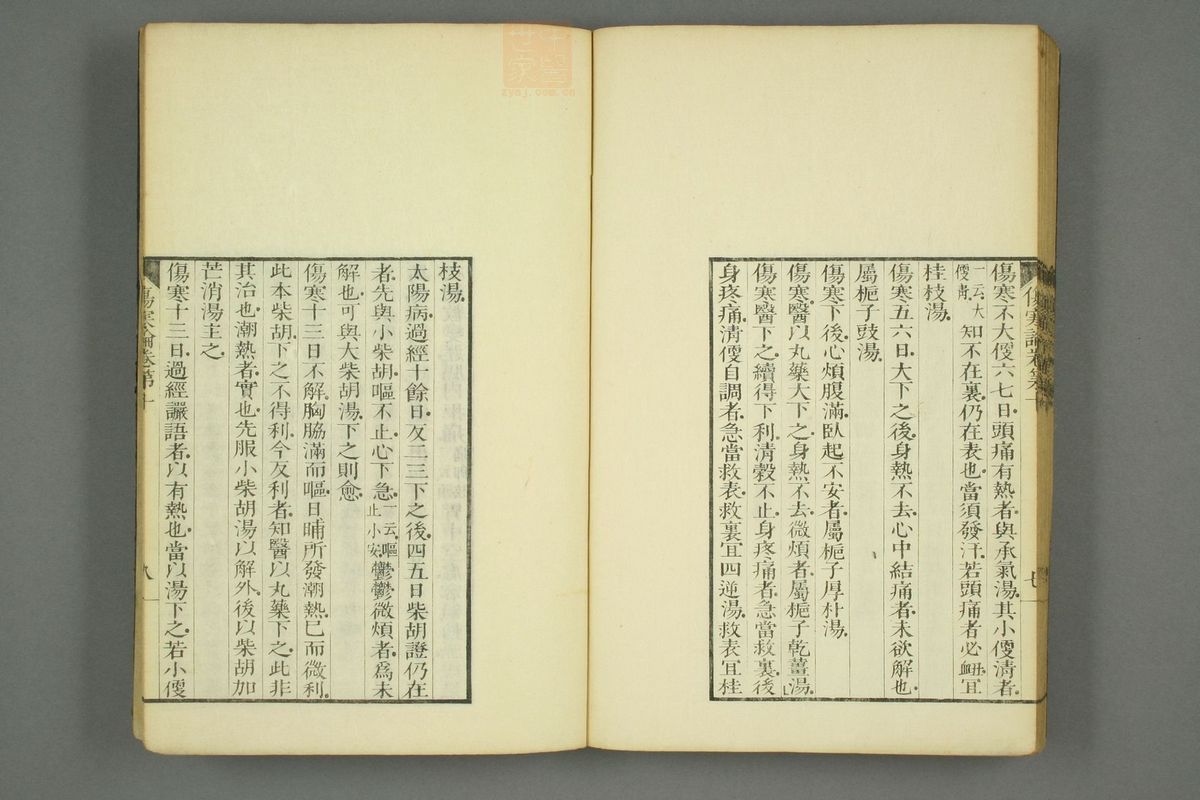 傷寒不大便六七日。頭痛有熱者。與承氣湯。其小便清者。
一云大便青。知不在裏。仍在表也。當須發汗。若頭痛者必衄。宜
桂枝湯。
傷寒五六日。大下之後。身熱不去。心中結痛者。未欲解也。
屬梔子豉湯。
傷寒下後。心煩腹滿。臥起不安者。屬梔子厚朴湯。
傷寒。醫以丸藥大下之。身熱不去。微煩者。屬梔子乾薑湯。
傷寒醫下之。續得下利。清穀不止。身疼痛者。急當救裏。後
身疼痛。清便自調者。急當救表。救裏宜四逆湯。救表宜桂
七
枝湯。
太陽病。過經十餘日。反二三下之後。四五日柴胡證仍在
者。先與小柴胡。嘔不止。心下急。一云嘔止小安。鬱鬱微煩者。爲未
解也。可與大柴胡湯。下之則愈。
傷寒十三日不解。胸脇滿而嘔。日晡所發潮熱。已而微利。
此本柴胡。下之不得利。今反利者。知醫以丸藥下之。此非
其治也。潮熱者。實也。先服小柴胡湯以解外。後以柴胡加
芒消湯主之。
傷寒十三日。過經讝語者。以有熱也。當以湯下之。若小便
傷寒論卷第十
八
中醫世家
zysj.com.cn